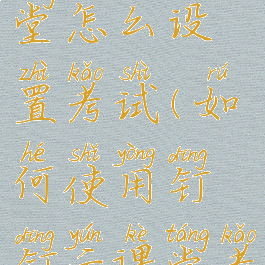 堂怎么设
zhì kǎo shì rú
置考试(如
hé shǐ yòng dīng
何使用钉
dīng yún kè táng kǎo
钉云课堂考